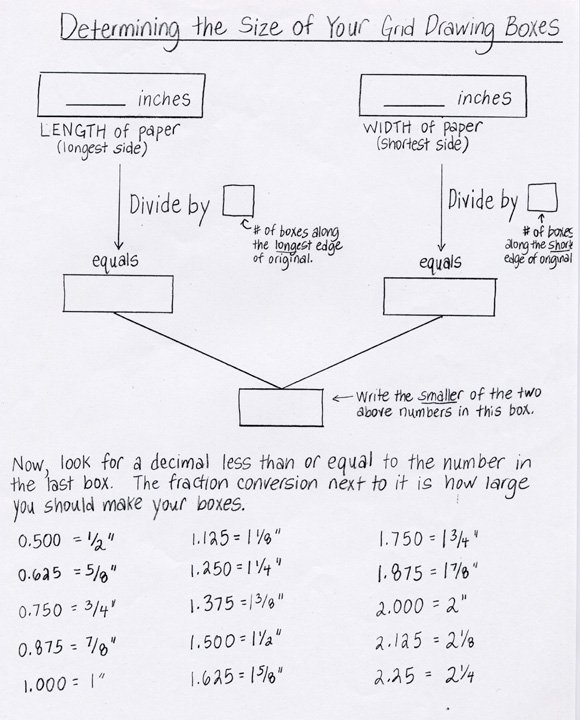 Determining the Size of Your Grid Drawing Boxes
______ inches
LENGTH of paper
(longest side)
Divide by
# of boxes along
the longest edge
of original.
equals
______ inches
WIDTH of paper
(shortest side)
Divide by
# of boxes
along the short
edge of original
equals
Write the smaller of the two
above numbers in this box.
Now, look for a decimal less than or equal to the number in
the last box. The fraction conversion next to it is how large
you should make your boxes.
0.500 = 1/2"
0.625 = 5/8"
0.750 = 3/4"
0.875 = 7/8"
1.000 = 1"
1.125 = 1 1/8"
1.250 = 1 1/4"
1.375 = 1 3/8"
1.500 = 1 1/2"
1.625 = 1 5/8"
1.750 = 1 3/4"
1.875 = 1 7/8"
2.000 = 2"
2.125 = 2 1/8
2.25 = 2 1/4